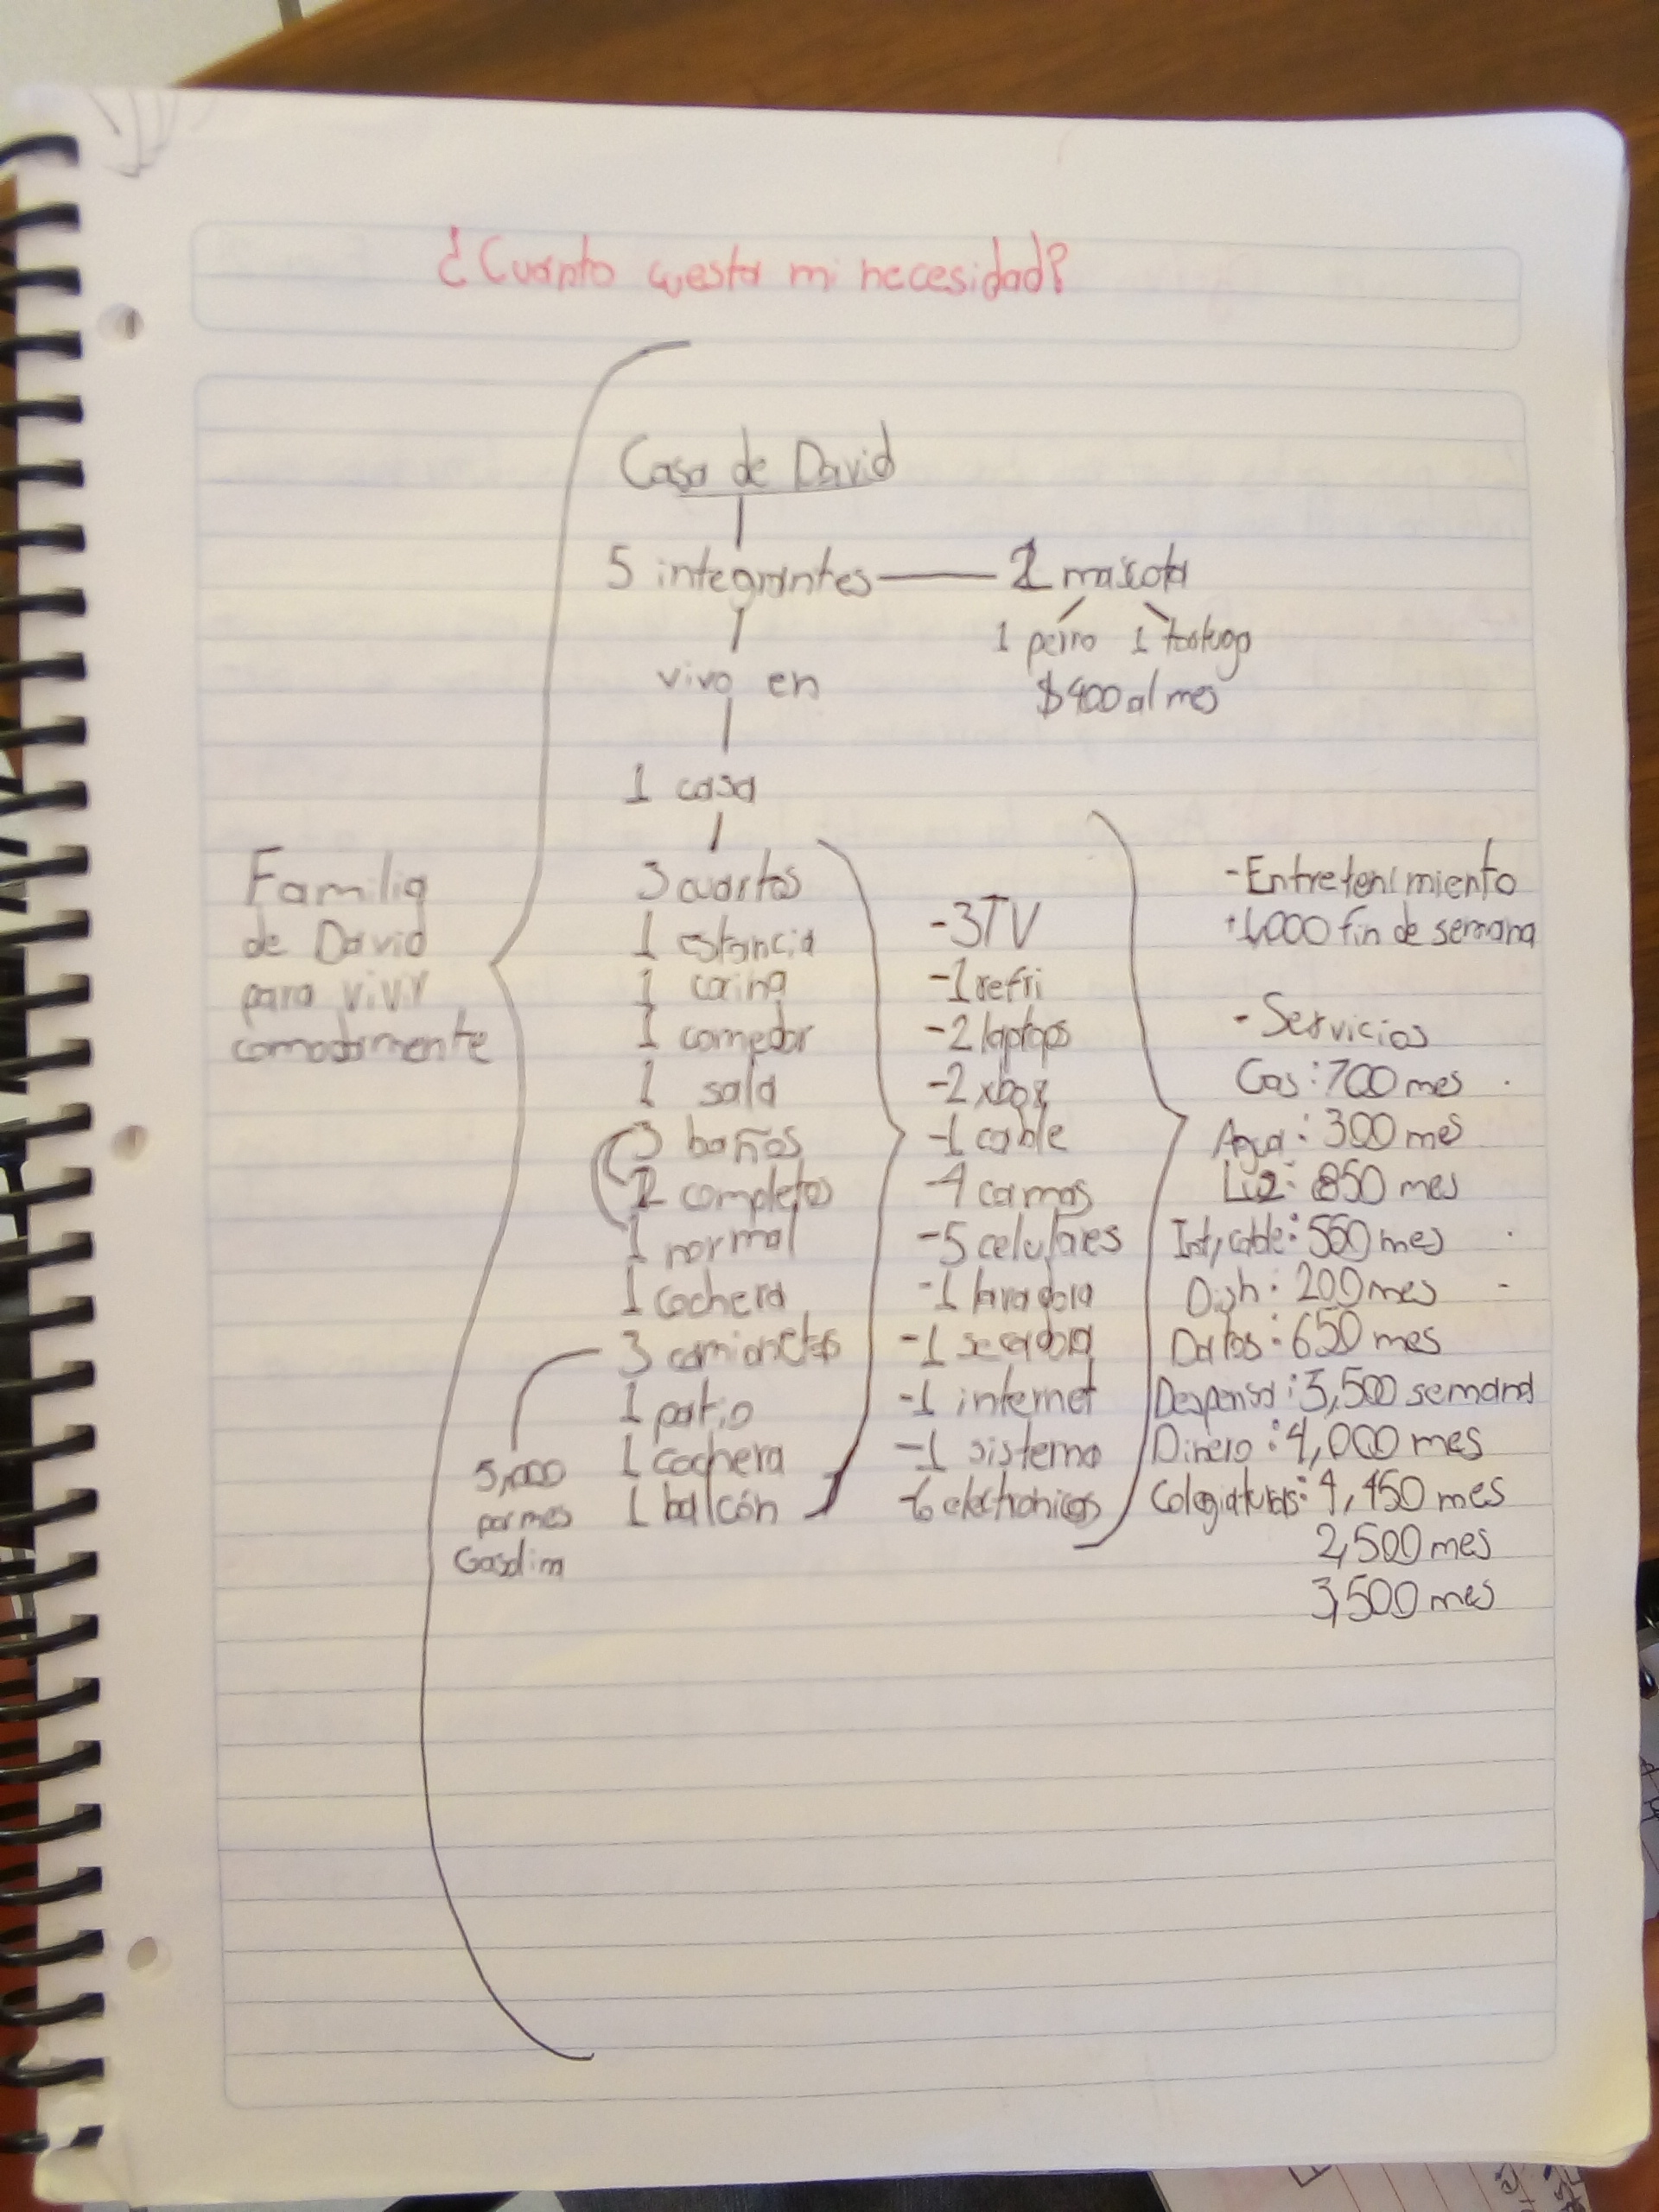 ¿Cuanto cuesta mi necesidad?
Casa de David
5 integrantes
2 mascota
1 perro 1 tortuga
$400 al mes
vivo en
1 casa
Familia
de David
para vivir
comodamente
3 cuartos
1 estancia
1 cocina
1 comedor
1 sala
3 baños
2 completos
1 normal
1 cochera
3 camionetas
1 patio
1 cochera
1 balcón
5,000
por mes
Gasolina
-3TV
-1 refri
-2 laptops
-2 xbox
-1 cable
-4 camas
-5 celulares
-1 lavadora
-1 secadora
-1 internet
-1 sistema
-6 electronicos
-Entretenimiento
+1,000 fin de semana
- Servicios
Gas: 700 mes
Agua: 300 mes
Luz: 850 mes
Int, cable: 550 mes
Dish: 200 mes
Datos: 650 mes
Despensa: 3,500 semana
Dinero: 4,000 mes
Colegiaturas: 4,450 mes
2,500 mes
3,500 mes